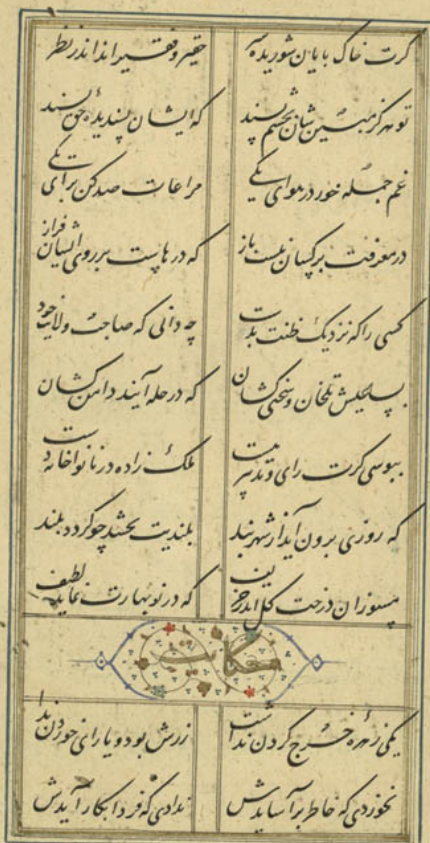 کرت خاک پایان شوریده سر حقیر و فقیر اند اندر نظر
تو هرگز مبین شان بچشم پسند که ایشان پسندیده حق بسند
غم جمله خور در هوای یکی مراعات صد کن برای یکی
در معرفت بر کسانیست باز که درهاست بر روی ایشان فراز
کسی را که نزدیک ظنت بدست چه دانی که صاحب ولایت خود
بسا تلخ عیشان و سختی کشان که در حله آیند دامن کشان
ببوسی کرت رای و تدبیر هست ملک زاده در نواخانه دست
که روزی برون آید از شهر بند بلندیت بخشد چو کردد بلند
مسوزان درخت کل اندر خزین که در نوبهارت نماید لطیف
حکایت
یکی زهره خرج کردن نداشت زرش بود و یارای خوردن نداشت
نخوردی که خاطر بر آسایدش ندادی که فردا بکار آیدش